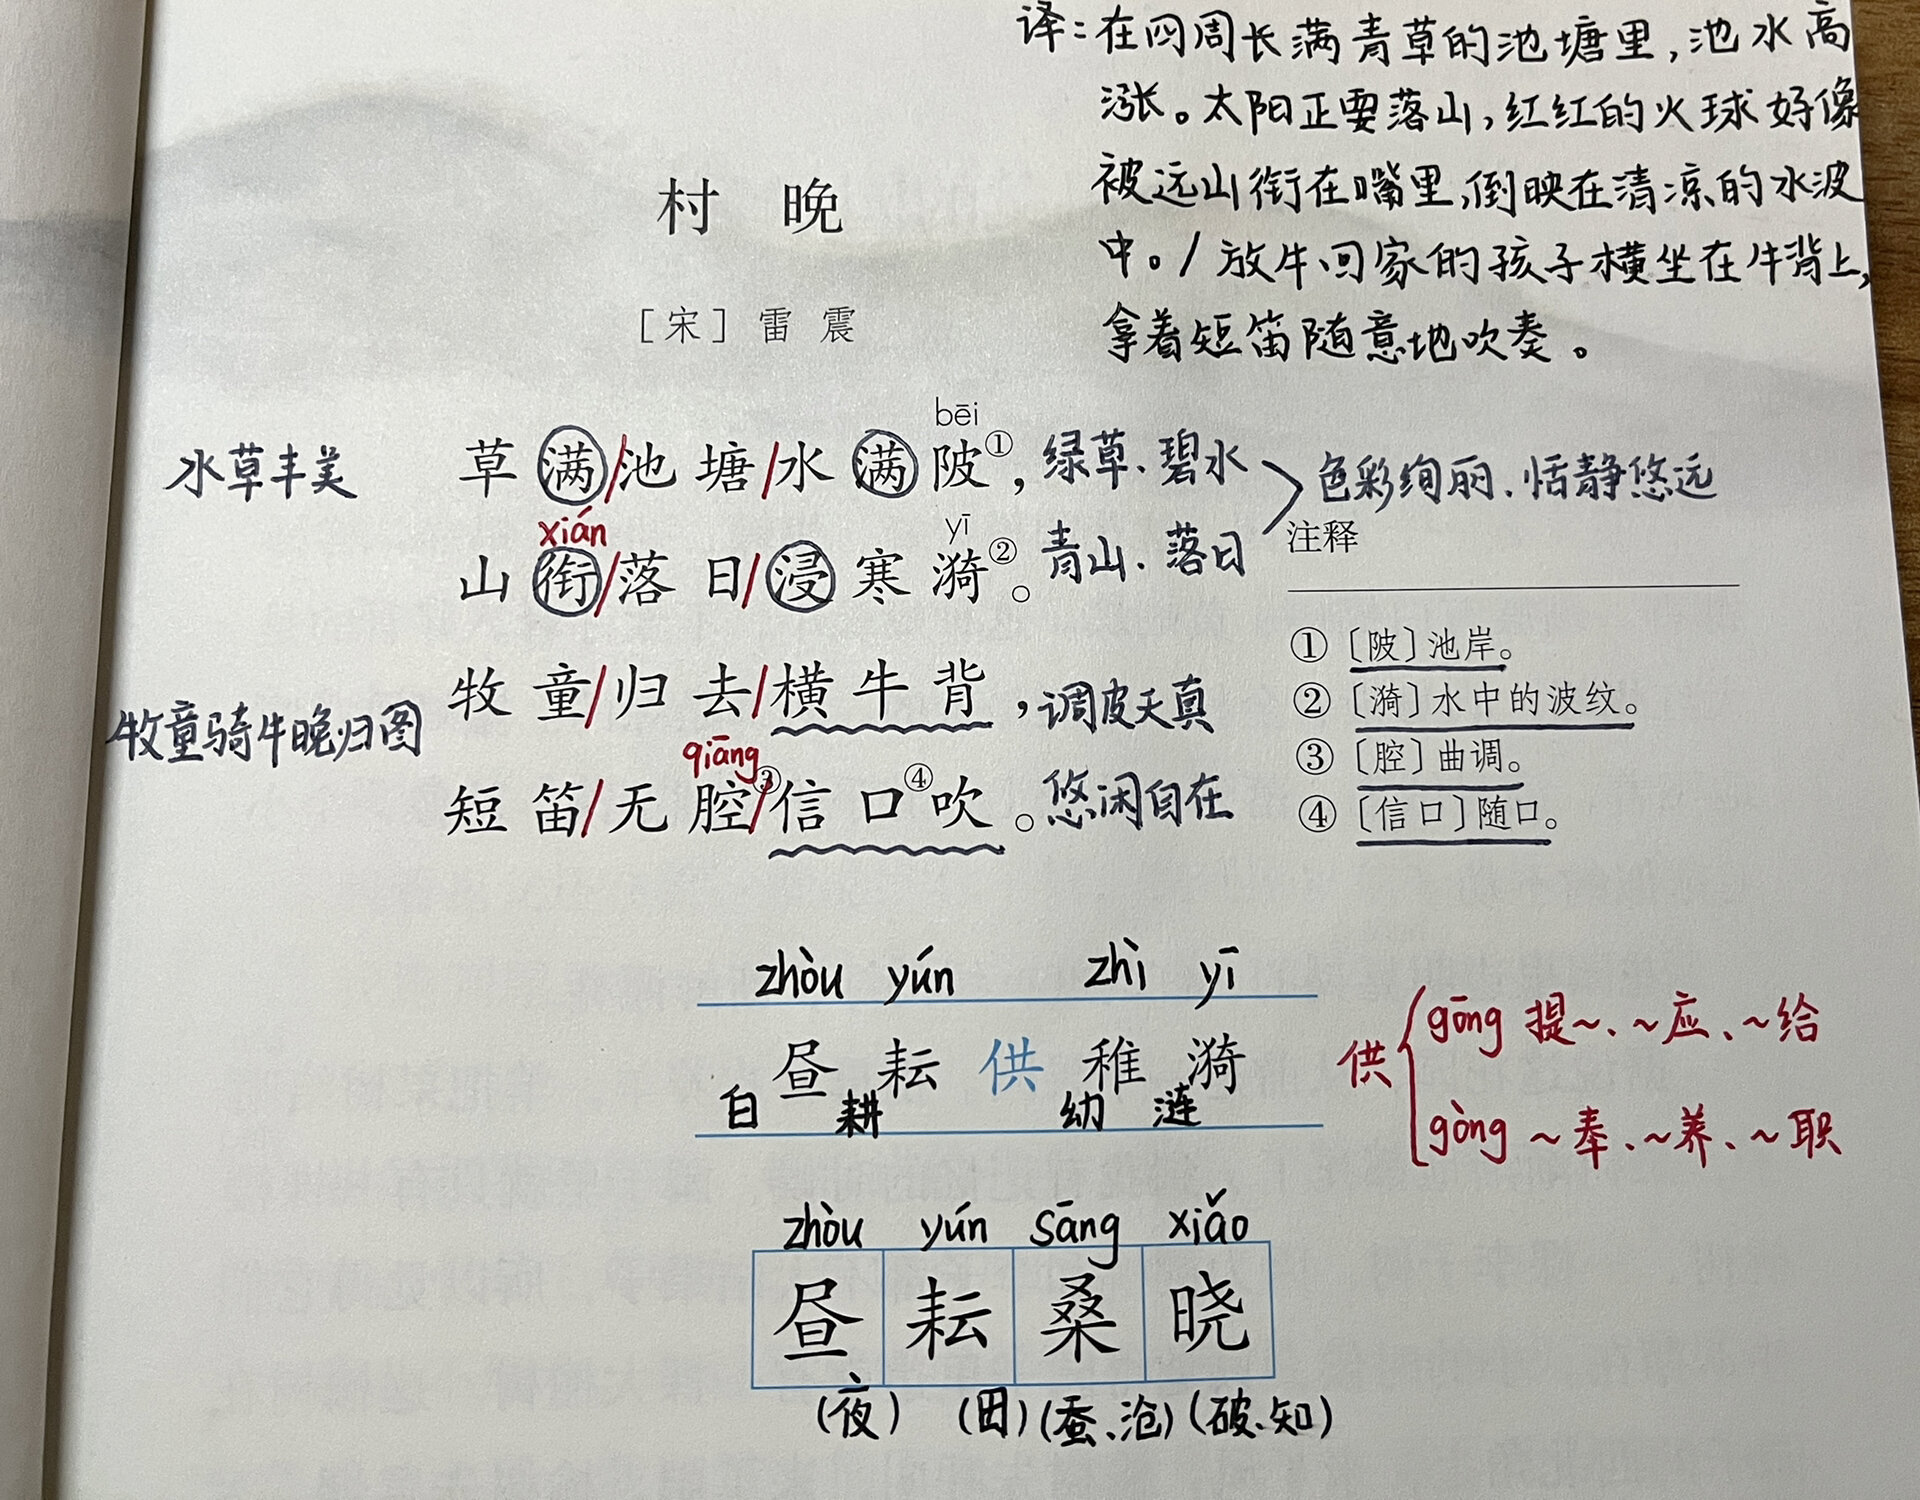 译:在四周长满青草的池塘里,池水高
涨。太阳正要落山,红红的火球好像
被远山衔在嘴里,倒映在清凉的水波
中。/放牛回家的孩子横坐在牛背上,
拿着短笛随意地吹奏。
村晚
[宋]雷震
bēi
水草丰美 草满/池塘/水满陂①,绿草、碧水 色彩绚丽、恬静悠远
xián yī
山衔/落日/浸寒漪②。青山、落日
牧童骑牛晚归图 牧童/归去/横牛背,调皮天真
qiāng
短笛/无腔③/信口④吹。悠闲自在
注释
①〔陂〕池岸。
②〔漪〕水中的波纹。
③〔腔〕曲调。
④〔信口〕随口。
zhòu yún zhì yī
昼耘供稚漪
白 耕 幼 涟
供 gōng 提~、~应、~给
gòng ~奉、~养、~职
zhòu yún sāng xiǎo
昼耘桑晓
(夜) (田) (蚕、沧) (破、知)